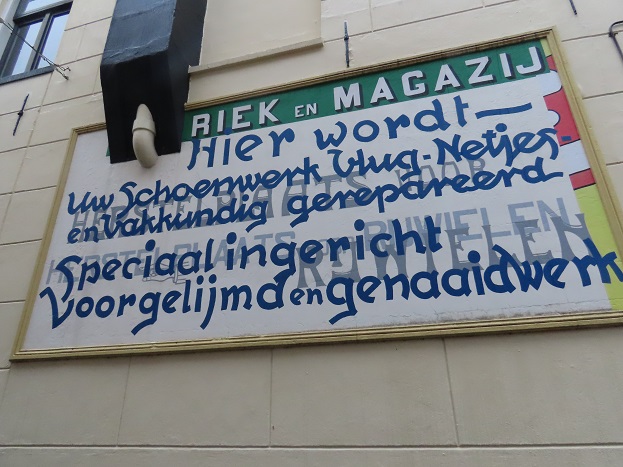 RIEK EN MAGAZIJ
Hier wordt—
Uw Schoenwerk Vlug-Netjes-
en Vakkundig gerepareerd—
HERSTELPLAATS VOOR
Speciaal ingericht
HERSTELPLAATS RIJWIELEN
RIJWIELEN
Voor gelijmd en genaaid werk